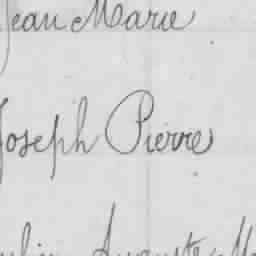 Jean Marie
Joseph Pierre
Auguste